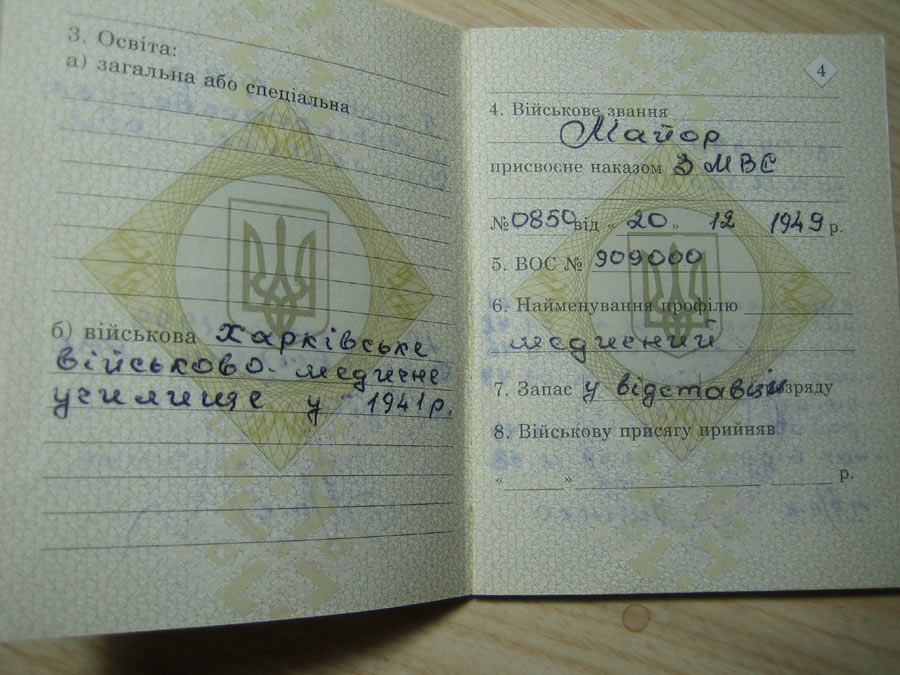 3. Освіта:
а) загальна або спеціальна
б) військова Харківське
військово-медичне
училище у 1941 р.
4
4. Військове звання
Майор
присвоєне наказом З МВС
№ 0850 від « 20 » 12 1949 р.
5. ВОС № 909000
6. Найменування профілю
медичний
7. Запас у відставці розряду
8. Військову присягу прийняв
« » р.